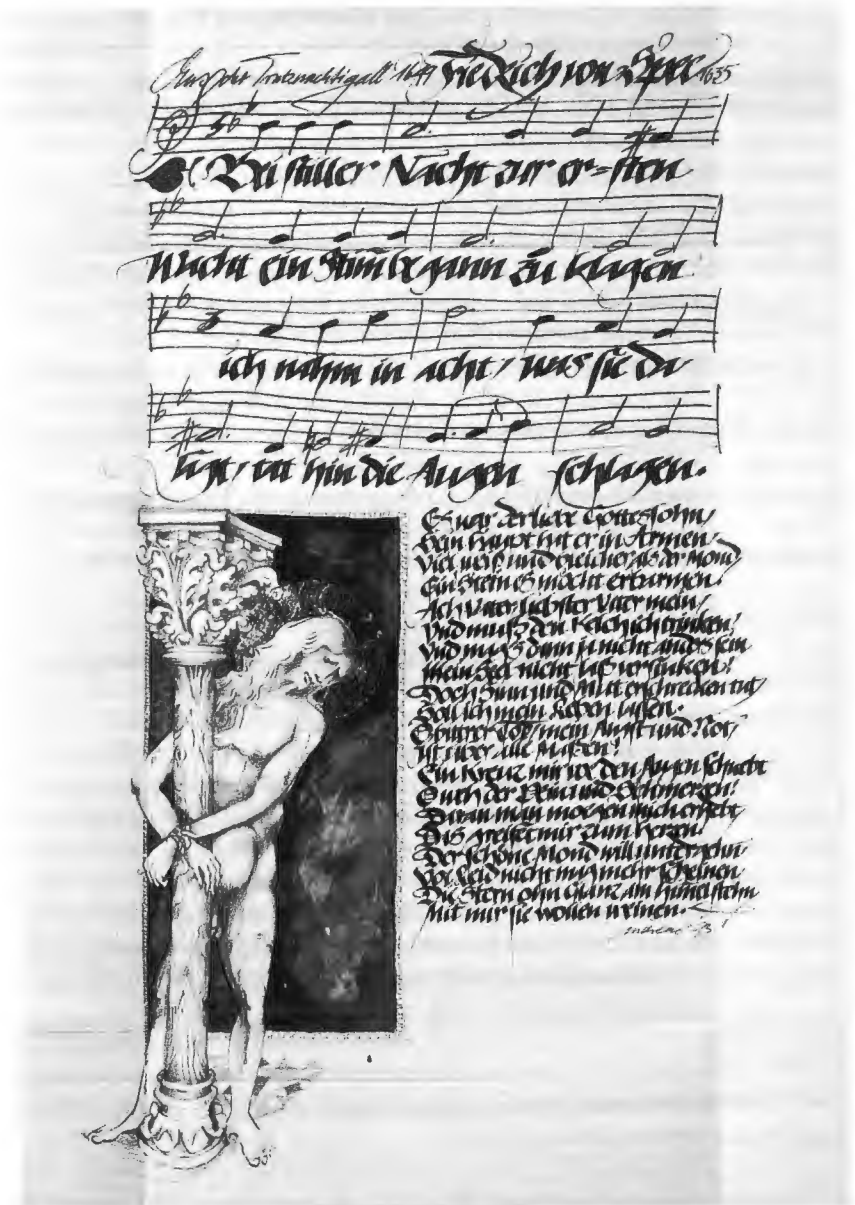 Trutznachtigall 1649 Friedrich von Spee 1635
Bei stiller Nacht zur er=sten
Wacht ein Stim̄ begann zu klagen
ich nahm in acht / was sie da
sagt / tät hin die Augen schlagen.
Es war der liebe Gottessohn /
Sein Haupt hat er in Armen /
Viel weiß und bleicher als der Mond /
Ein Stein es möcht erbarmen.
Ach Vater liebster Vater mein /
Und muß den Kelch ich trinken?
Und muß dann ja nicht anders sein
mein Seel nicht laß versinken!
Doch Sinn und Mut erschrecken tut /
Soll ich mein Leben lassen.
O bittrer Tod / mein Angst und Not /
ist über alle Maßen!
Ein Kreuz mir vor den Augen schwebt
O weh der Pein und Schmerzen!
Daran man morgen mich erhebt /
Das greifet mir zum Herzen!
Der schöne Mond will untergehn /
vor Leid nicht mag mehr scheinen
Die Stern ohn Glanz am Himel stehn
Mit mir sie wollen weinen.